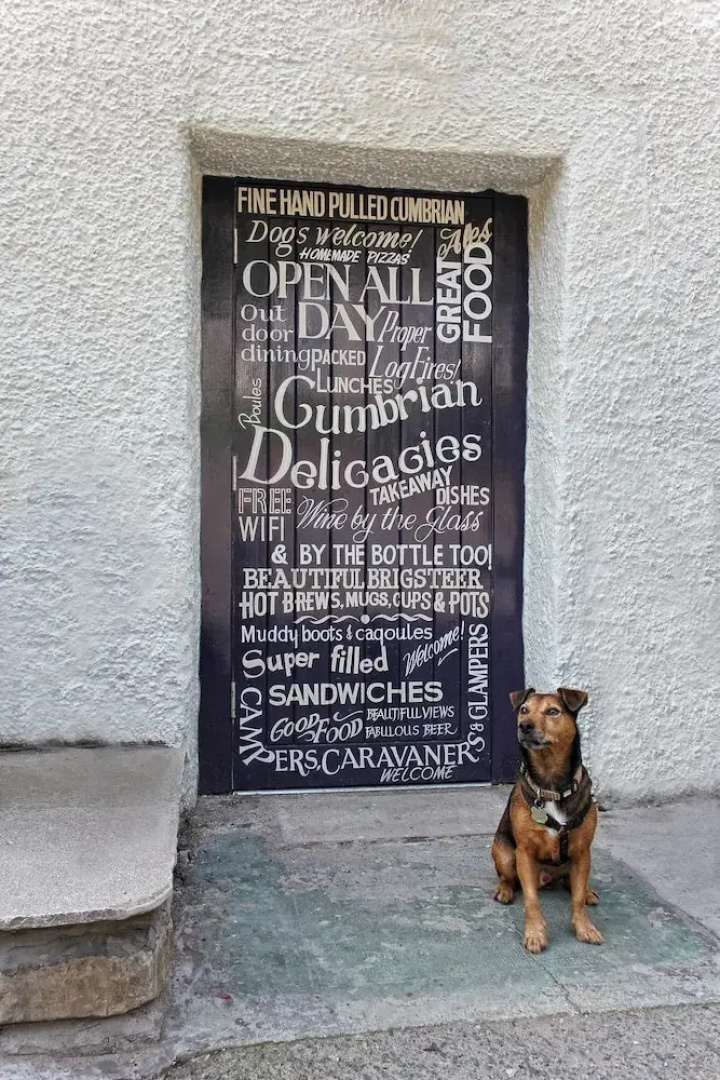 FINE HAND PULLED CUMBRIAN
Ales
Dogs welcome!
HOMEMADE PIZZAS
GREAT
FOOD
OPEN ALL
DAY
Out
door
dining
Proper
Log Fires!
PACKED
LUNCHES
Boules
Cumbrian
Delicacies
TAKEAWAY
DISHES
FREE
WIFI
Wine by the Glass
& BY THE BOTTLE TOO!
BEAUTIFUL BRIGSTEER
HOT BREWS, MUGS, CUPS & POTS
Muddy boots & cagoules
Welcome!
Super filled
SANDWICHES
GOOD FOOD
BEAUTIFUL VIEWS
FABULOUS BEER
CAMPERS, CARAVANERS & GLAMPERS
WELCOME